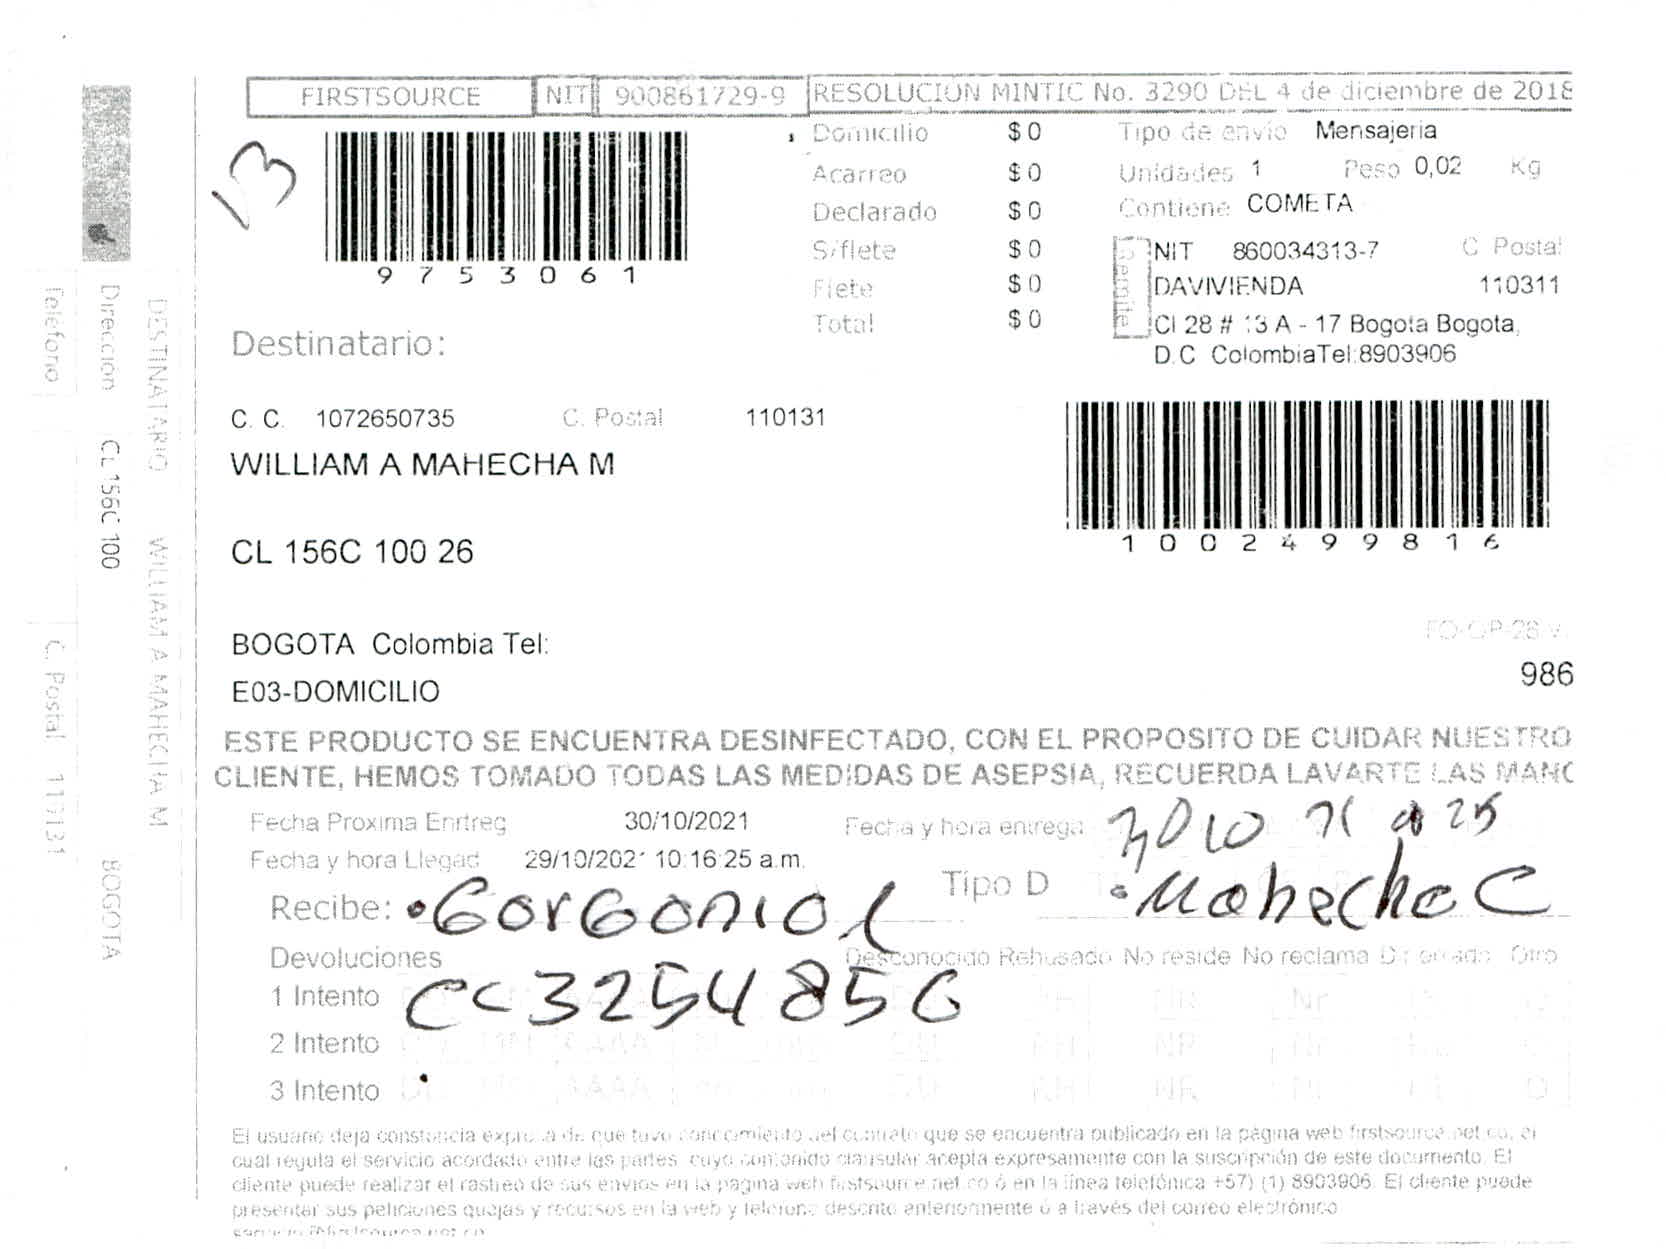 FIRSTSOURCE NIT 900861729-9 RESOLUCION MINTIC No. 3290 DEL 4 de diciembre de 2018
13
9753061
Domicilio $ 0
Acarreo $ 0
Declarado $ 0
S/flete $ 0
Flete $ 0
Total $ 0
Tipo de envio Mensajeria
Unidades 1 Peso 0,02 Kg
Contiene COMETA
Remite
NIT 860034313-7 C Postal
DAVIVIENDA 110311
Cl 28 # 13 A - 17 Bogota Bogota,
D.C ColombiaTel:8903906
Destinatario:
C. C. 1072650735 C. Postal 110131
WILLIAM A MAHECHA M
1002499816
CL 156C 100 26
BOGOTA Colombia Tel:
FO-OP-28 V.
E03-DOMICILIO
986
ESTE PRODUCTO SE ENCUENTRA DESINFECTADO, CON EL PROPOSITO DE CUIDAR NUESTRO
CLIENTE, HEMOS TOMADO TODAS LAS MEDIDAS DE ASEPSIA, RECUERDA LAVARTE LAS MANO
Fecha Proxima Entreg 30/10/2021 Fecha y hora entrega
Fecha y hora Llegad 29/10/2021 10:16:25 a.m.
Recibe: Gorgonio Tipo D Mahecha C
Devoluciones Desconocido Rehusado No reside No reclama Otro
CC 3254856
1 Intento
2 Intento
3 Intento
El usuario deja constancia expresa de que tuvo conocimiento del contrato que se encuentra publicado en la pagina web firstsource.net.co, el
cual regula el servicio acordado entre las partes, cuyo contenido clausular acepta expresamente con la suscripción de este documento. El
cliente puede realizar el rastreo de sus envios en la pagina web firstsource.net.co ó en la línea telefónica +57) (1) 8903906. El cliente puede
presentar sus peticiones quejas y recursos en la web y telefono descrito anteriormente o a través del correo electrónico
DESTINATARIO WILLIAM A MAHECHA M
Direccion CL 156C 100 BOGOTA
Telefono C. Postal 110131